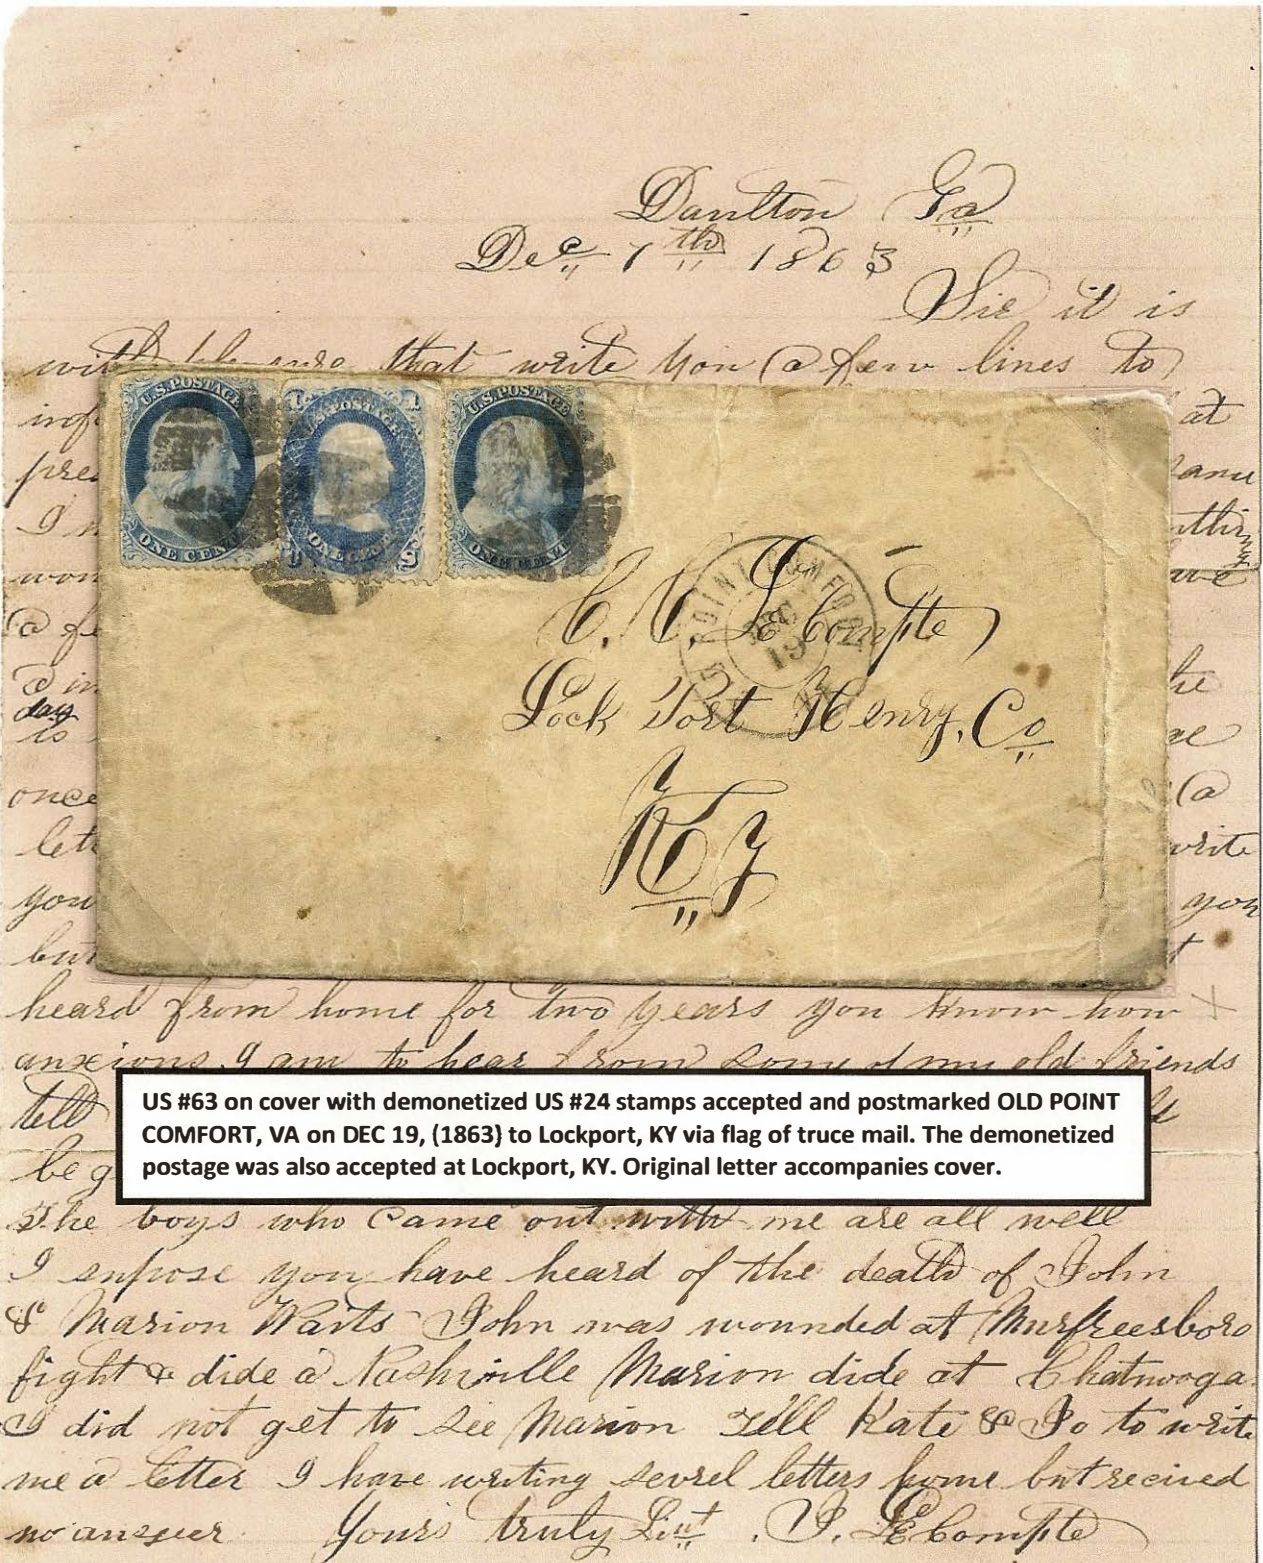 Daulton Ga
Dec 7th 1863
Sir it is
with that write you a few lines to
inf
at
pre
I
won
a fe
a in
day
is
he
once
a
lett
write
you
you
but
t
heard from home for two years you know how
anxions I am to hear from some of my old friends
tell
be g
The boys who came out with me are all well
I supose you have heard of the death of John
& Marion Waits John was wounded at Murfreesboro
fight & dide a Nashville Marion dide at Chatnooga
I did not get to see Marion Tell Kate & Jo to write
me a letter I have writing sevrel letters home but recived
no answer Yours truly Liut . J. LeCompte
U.S. POSTAGE
ONE CENT
1 U.S. POSTAGE 1
ONE CENT
U S
U.S. POSTAGE
ONE CENT
OLD POINT COMFORT
DEC
19
VA
C. C. LeCompte
Lock Port Henry, Co
KY
US #63 on cover with demonetized US #24 stamps accepted and postmarked OLD POINT
COMFORT, VA on DEC 19, (1863) to Lockport, KY via flag of truce mail. The demonetized
postage was also accepted at Lockport, KY. Original letter accompanies cover.